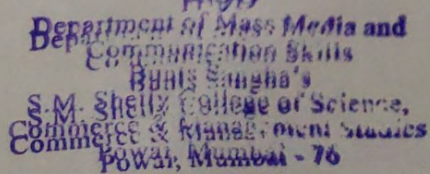 Department of Mass Media and
Communication Skills
Bunts Sangha's
S.M. Shetty College of Science,
Commerce & Management Studies
Powai, Mumbai - 76